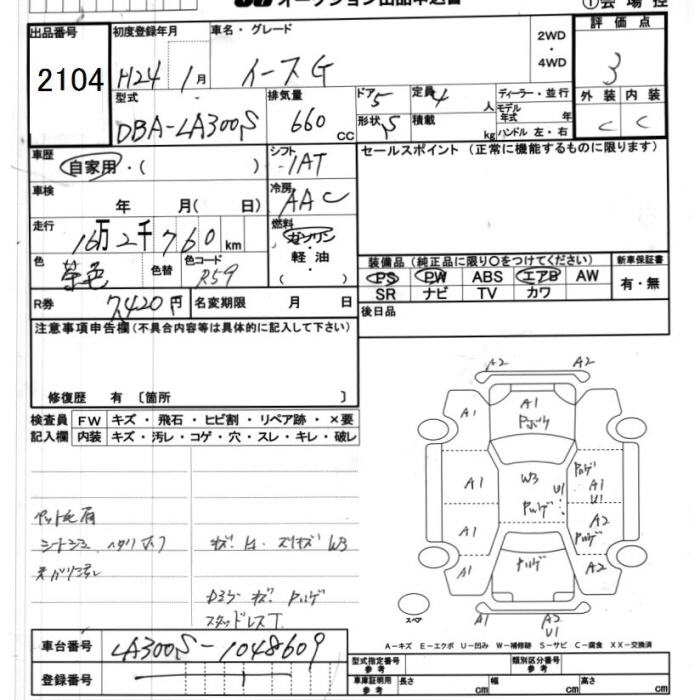 オークション出品申込書
①会場控
出品番号
2104
初度登録年月
H24 1月
車名・グレード
イースG
2WD
・
4WD
評価点
3
型式
DBA-LA300S
排気量
660 cc
ドア 5
定員 4 人
ディーラー・並行
モデル年式 年
形状 S
積載 kg
ハンドル 左・右
外装 内装
C C
車歴
自家用・( )
シフト
IAT
セールスポイント (正常に機能するものに限ります)
車検
年 月( 日)
冷房
AAC
走行
16万2千760km
燃料
ガソリン・軽油・( )
色
茶色
色替
色コード
R59
装備品 (純正品に限り○をつけてください)
新車保証書
PS PW ABS エアB AW
有・無
SR ナビ TV カワ
R券
7420円
名変期限 月 日
後日品
注意事項申告欄(不具合内容等は具体的に記入して下さい)
修復歴 有 〔箇所 〕
検査員 FW キズ・飛石・ヒビ割・リペア跡・×要
記入欄 内装 キズ・汚レ・コゲ・穴・スレ・キレ・破レ
A2 A2
A1 A1
W3
A1 U1 A1
U1
A1 A2
A1 A2
スペア
A1 A2
U1
W3
スタッドレスT
A-キズ E-エクボ U-凹み W-補修跡 S-サビ C-腐食 XX-交換済
車台番号
LA300S-1048609
登録番号
型式指定番号 参考
類別区分番号 参考
車庫証明用 参考
長さ cm
幅 cm
高さ cm